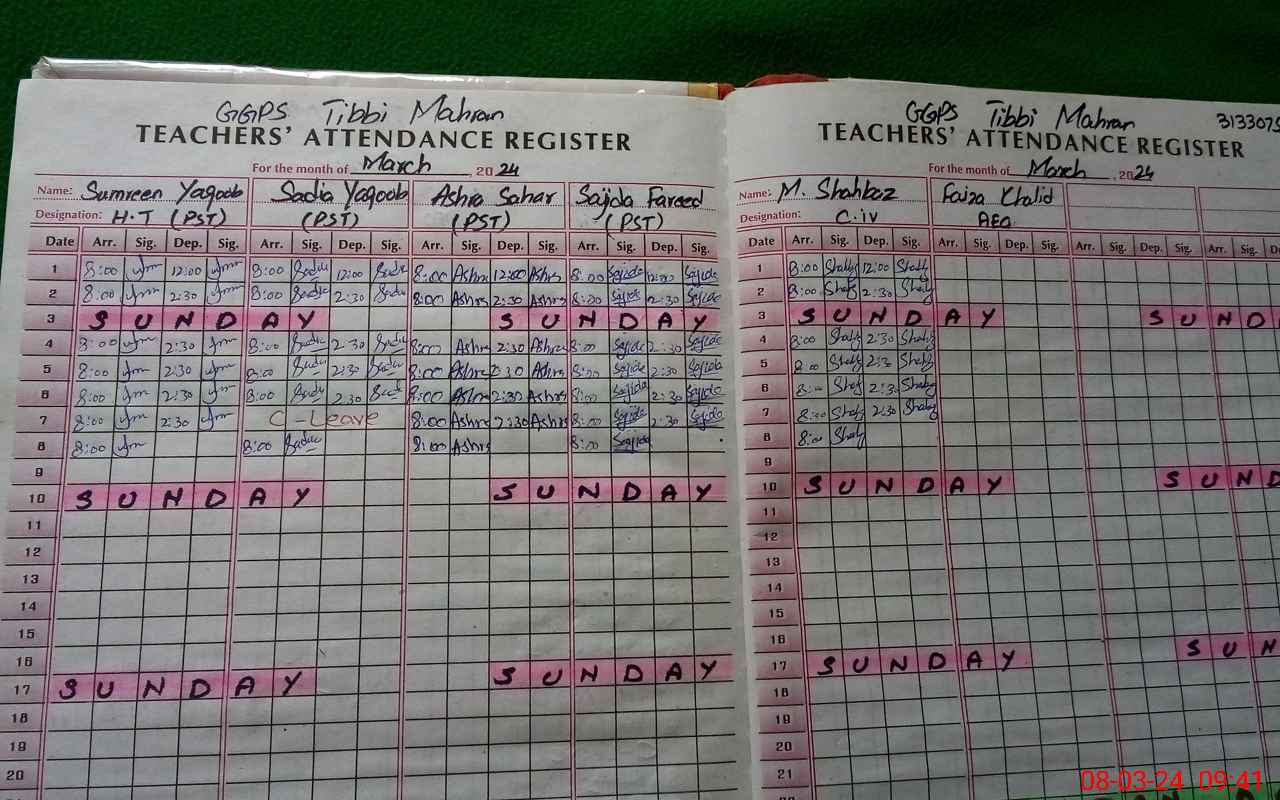 GGPS Tibbi Mahran
TEACHERS' ATTENDANCE REGISTER
For the month of March, 2024
Name: Sumreen Yaqoob Sadia Yaqoob Ashra Sahar Sajida Fareed
Designation: H.T (PST) (PST) (PST) (PST)
Date Arr. Sig. Dep. Sig. Arr. Sig. Dep. Sig. Arr. Sig. Dep. Sig. Arr. Sig. Dep. Sig.
1 8:00 12:00 8:00 Sadia 12:00 Sadia 8:00 Ashra 12:00 Ashra 8:00 Sajida 12:00 Sajida
2 8:00 2:30 8:00 Sadia 2:30 Sadia 8:00 Ashra 2:30 Ashra 8:00 Sajida 2:30 Sajida
3 SUNDAY SUNDAY
4 8:00 2:30 8:00 Sadia 2:30 Sadia 8:00 Ashra 2:30 Ashra 8:00 Sajida 2:30 Sajida
5 8:00 2:30 8:00 Sadia 2:30 Sadia 8:00 Ashra 2:30 Ashra 8:00 Sajida 2:30 Sajida
6 8:00 2:30 8:00 Sadia 2:30 Sadia 8:00 Ashra 2:30 Ashra 8:00 Sajida 2:30 Sajida
7 8:00 2:30 C-Leave 8:00 Ashra 2:30 Ashra 8:00 Sajida 2:30 Sajida
8 8:00 8:00 Sadia 8:00 Ashra 8:00 Sajida
9
10 SUNDAY SUNDAY
11
12
13
14
15
16
17 SUNDAY SUNDAY
18
19
20
GGPS Tibbi Mahran 3133075
TEACHERS' ATTENDANCE REGISTER
For the month of March, 2024
Name: M. Shahbaz Faiza Khalid
Designation: C.iv AEO
Date Arr. Sig. Dep. Sig. Arr. Sig. Dep. Sig. Arr. Sig. Dep. Sig. Arr. Sig.
1 8:00 Shahz 12:00 Shahz
2 8:00 Shahz 2:30 Shahz
3 SUNDAY SUND
4 8:00 Shahz 2:30 Shahz
5 8:00 Shahz 2:3 Shahz
6 8:00 Shahz 2:30 Shahz
7 8:00 Shahz 2:30 Shahz
8 8:00 Shahz
9
10 SUNDAY SUND
11
12
13
14
15
16
17 SUNDAY SUN
18
19
20
21
08-03-24 09:41